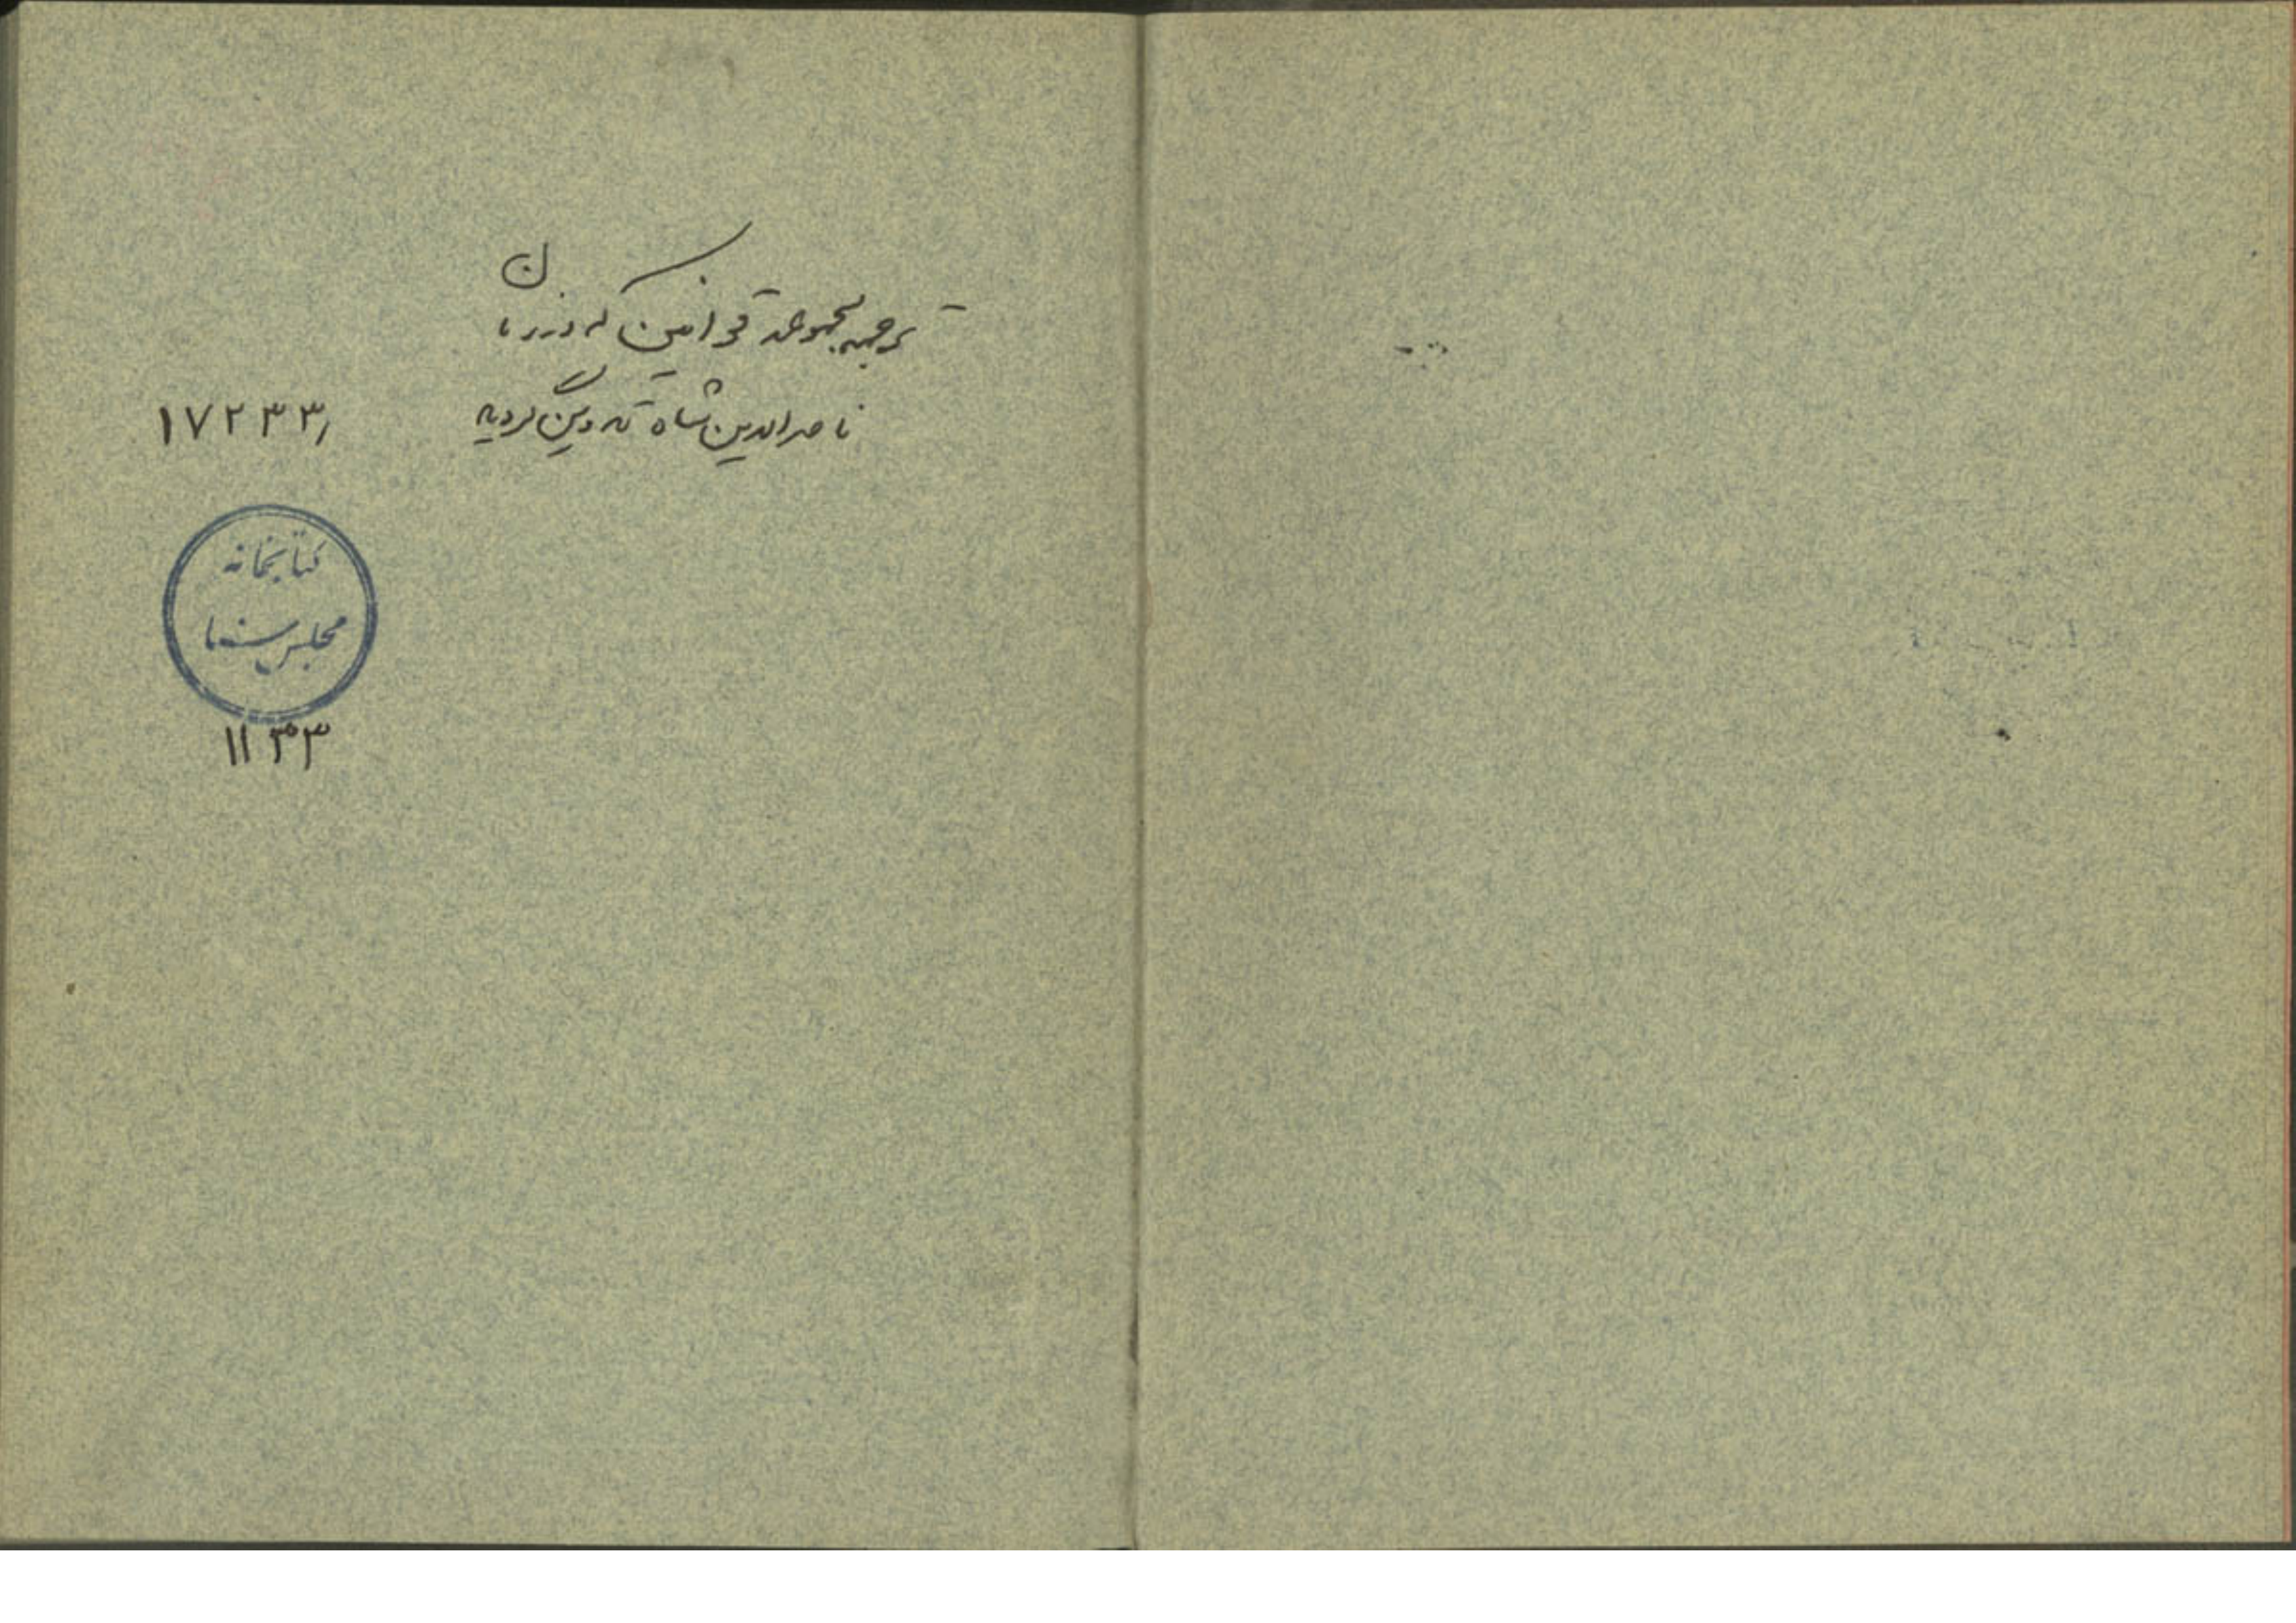 ترجمه مجموعه قوانین که در زمان
ناصرالدین شاه تدوین گردیه
۱۷۲۳۳
کتابخانه
مجلس سنا
۱۱۳۳